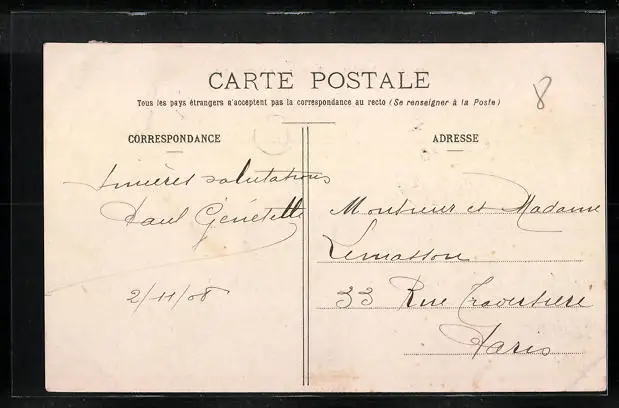 CARTE POSTALE
Tous les pays étrangers n'acceptent pas la correspondance au recto (Se renseigner à la Poste)
8
CORRESPONDANCE
ADRESSE
Sincères salutations
Paul Génétette
2/11/08
Monsieur et Madame
Lemasson
33 Rue Traversière
Paris